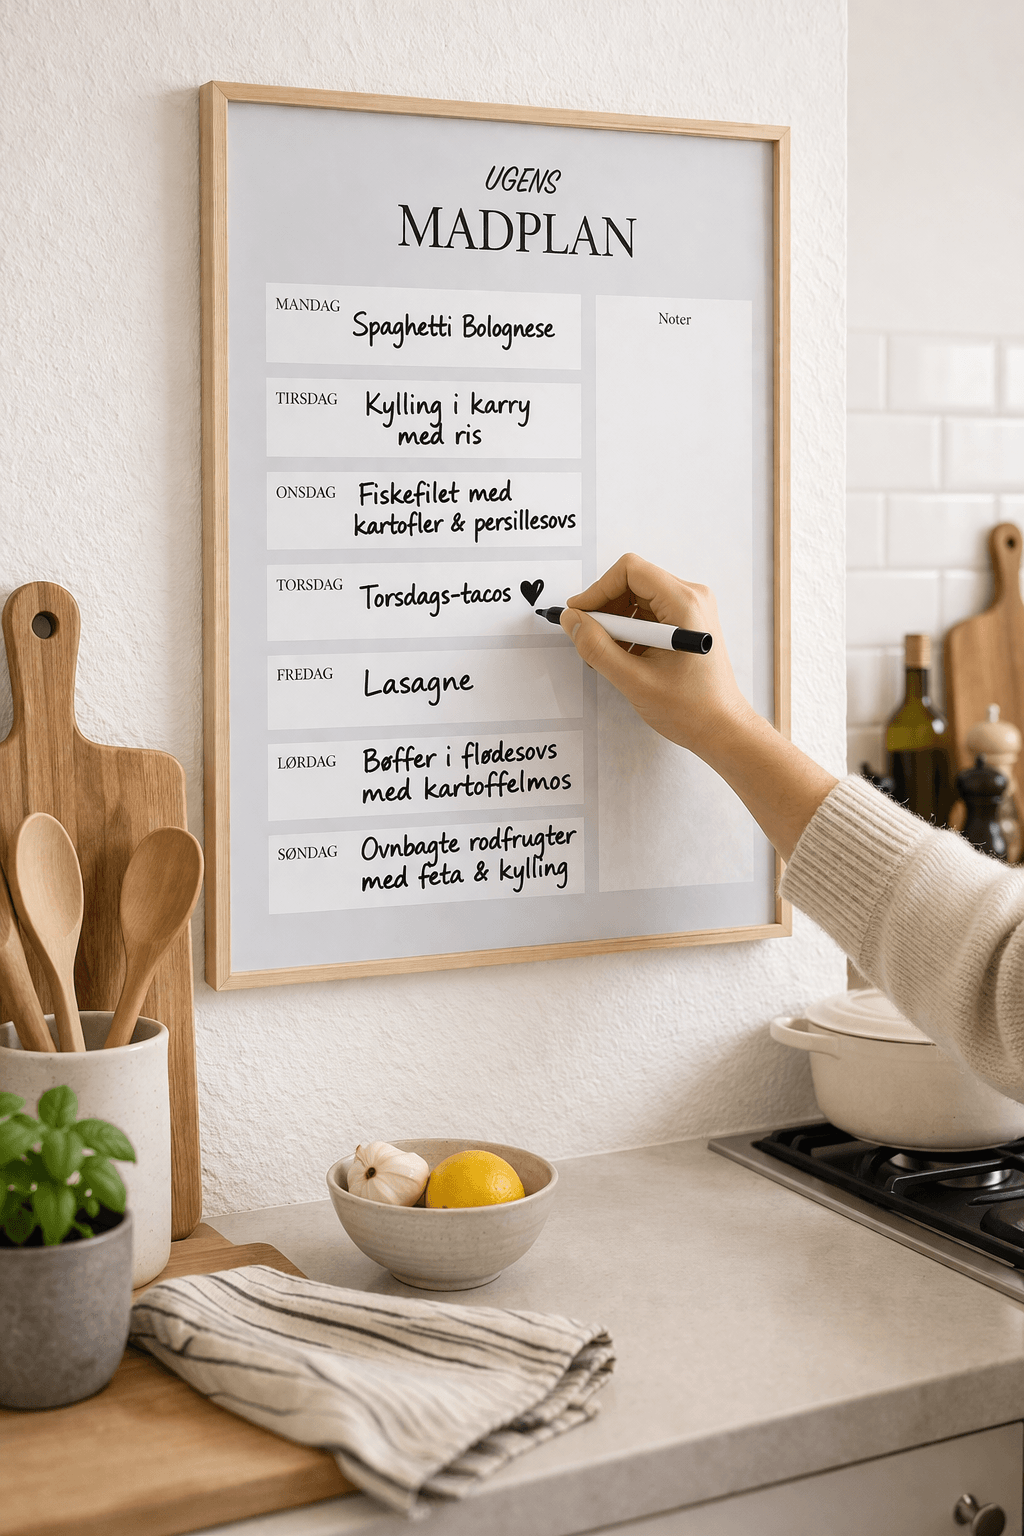 UGENS
MADPLAN
MANDAG
Spaghetti Bolognese
TIRSDAG
Kylling i karry
med ris
ONSDAG
Fiskefilet med
kartofler & persillesovs
TORSDAG
Torsdags-tacos ♥
FREDAG
Lasagne
LØRDAG
Bøffer i flødesovs
med kartoffelmos
SØNDAG
Ovnbagte rodfrugter
med feta & kylling
Noter